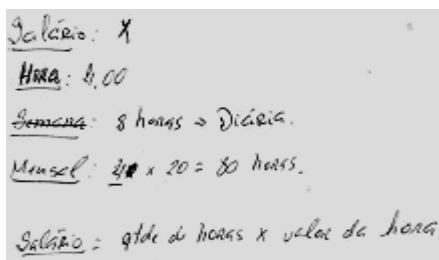 Salário: X
Hora: 4,00
Semana: 8 horas → Diária.
Mensal: x 20 = 80 horas.
Salário = qtde de horas x valor da hora